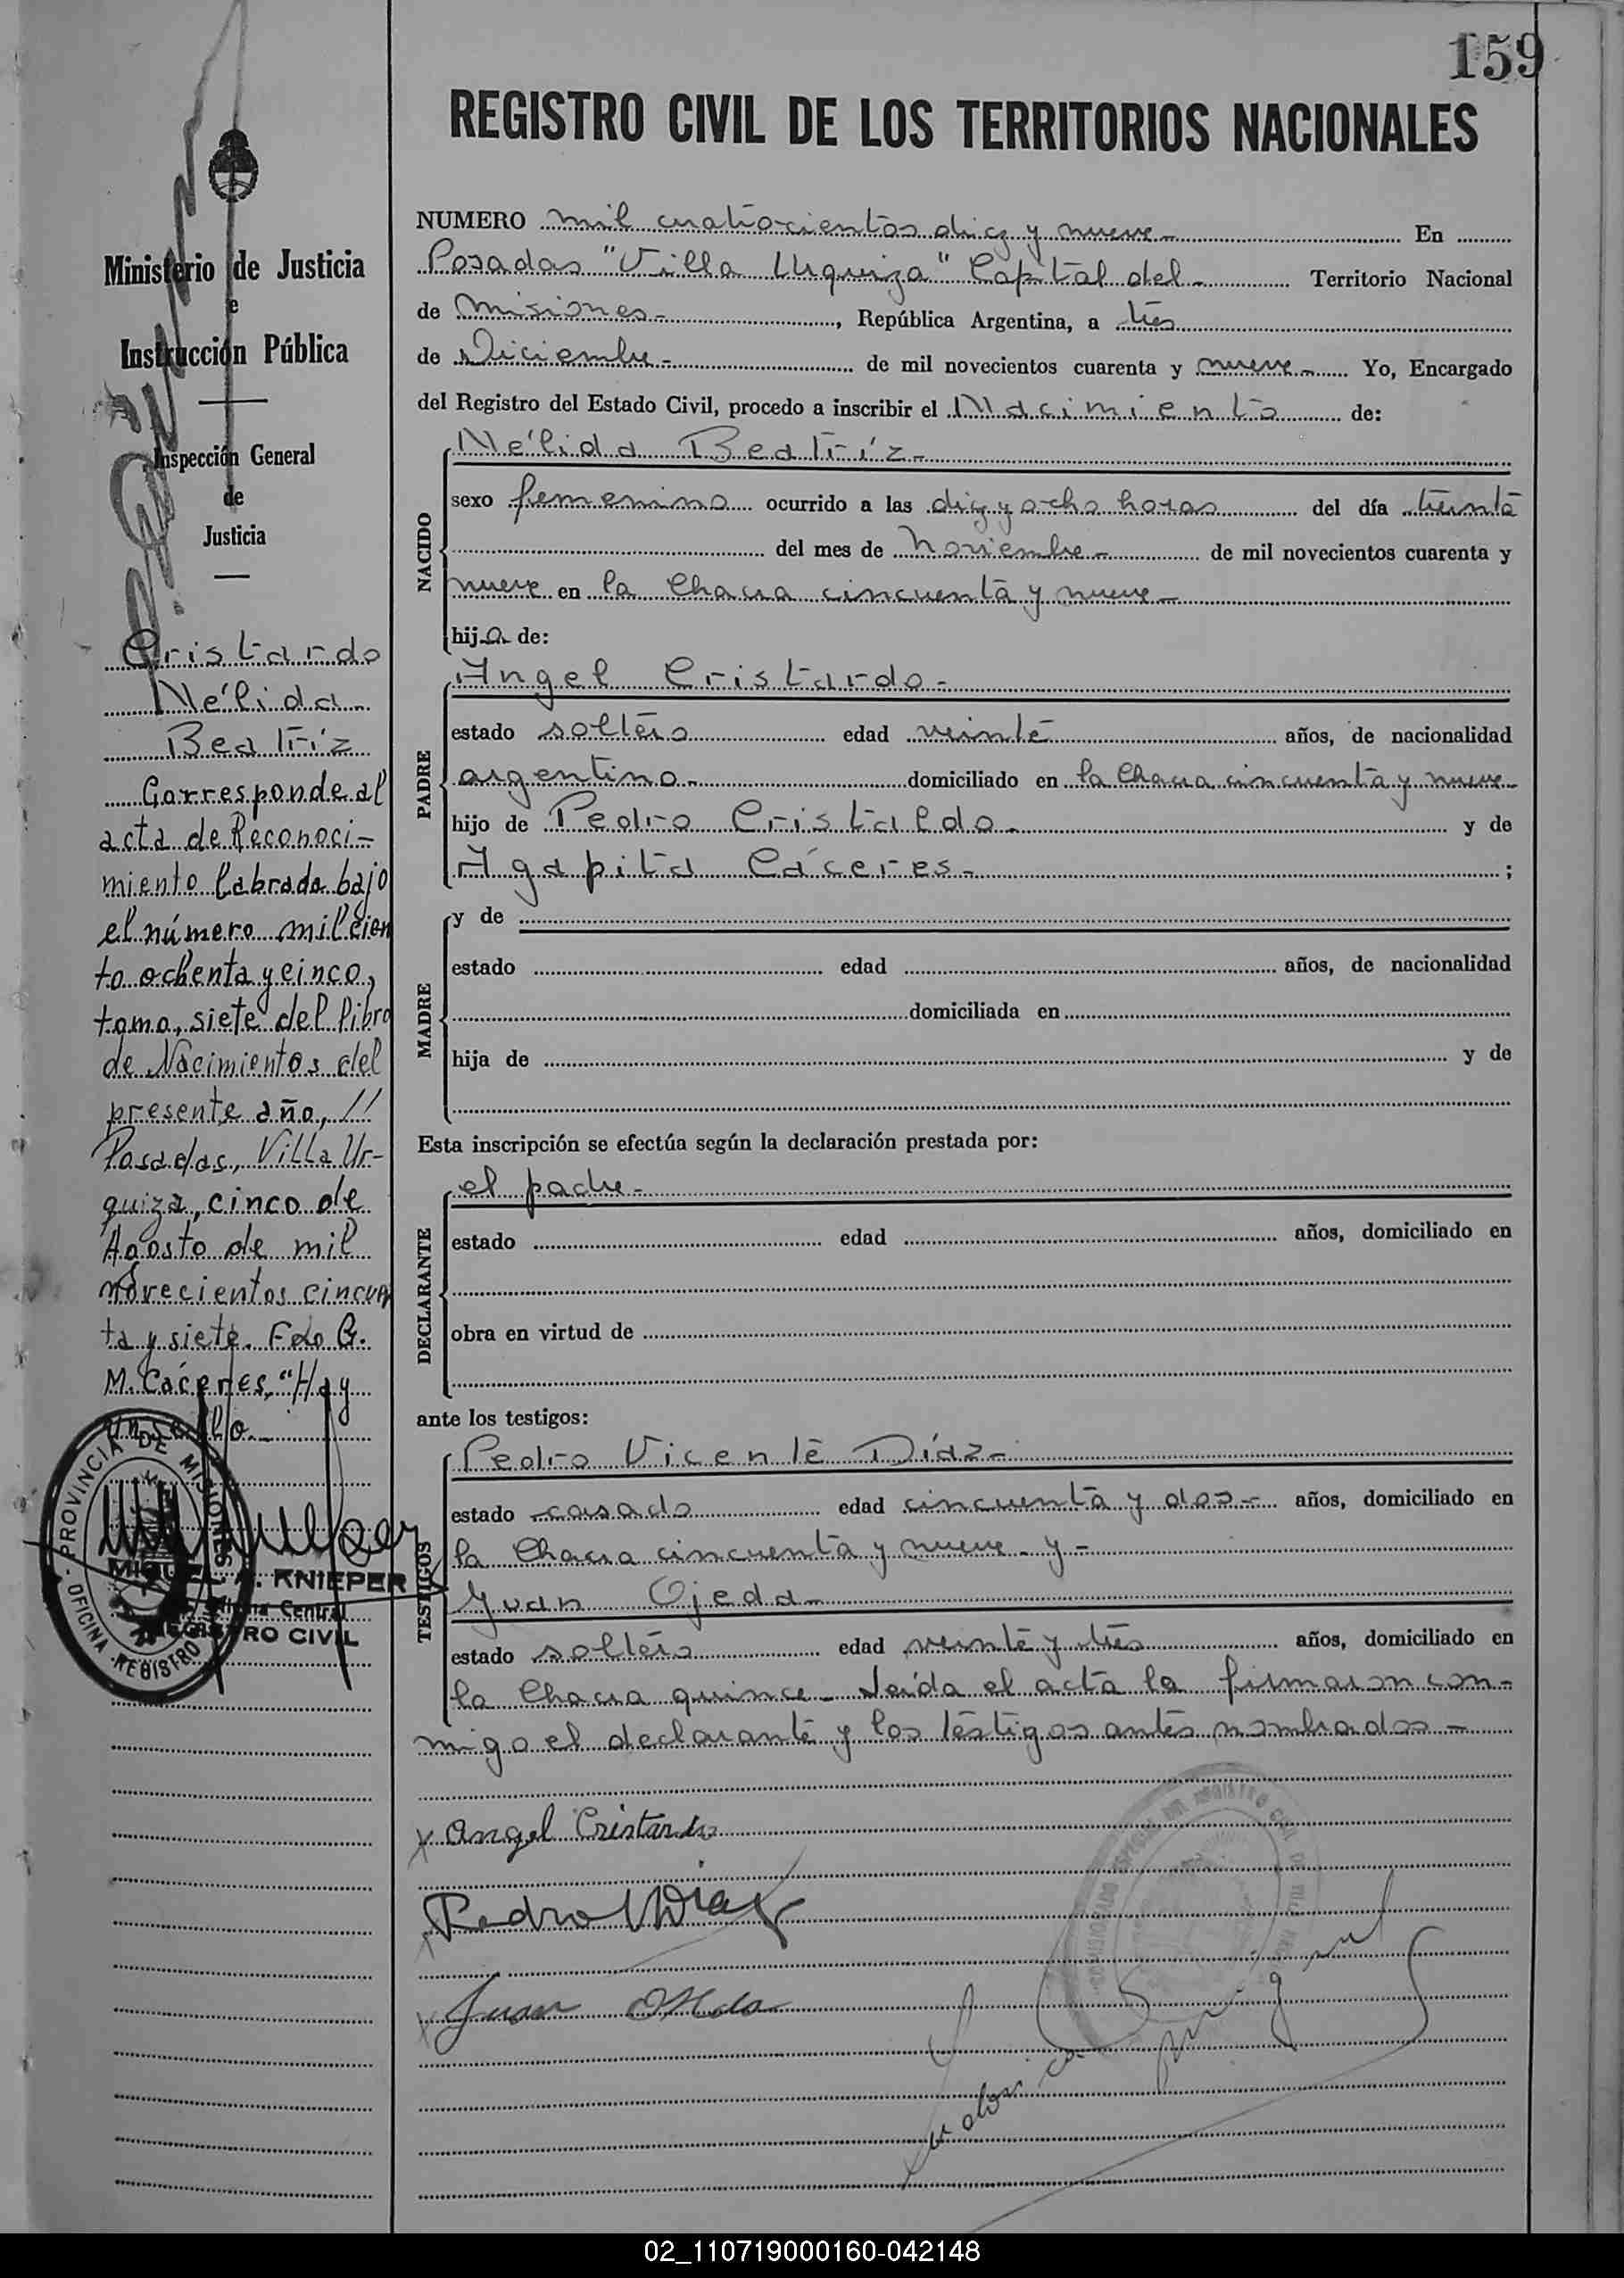 159
REGISTRO CIVIL DE LOS TERRITORIOS NACIONALES
Ministerio de Justicia
e
Instrucción Pública
Inspección General
de
Justicia
Cristardo
Nélida
Beatríz
Corresponde al
acta de Reconoci-
miento labrada bajo
el número mil cien
to ochenta y cinco,
tomo, siete del libro
de Nacimientos del
presente año, //
Posadas, Villa Ur-
quiza, cinco de
Agosto de mil
novecientos cincuen
ta y siete. Fdo G.
M. Cáceres, "Hay
un sello.-
PROVINCIA DE MISIONES
OFICINA REGISTRO
KNIEPER
Oficina Central
REGISTRO CIVIL
NUMERO mil cuatrocientos diez y nueve- En
Posadas "Villa Urquiza" Capital del- Territorio Nacional
de Misiones-, República Argentina, a tres
de Diciembre- de mil novecientos cuarenta y nueve- Yo, Encargado
del Registro del Estado Civil, procedo a inscribir el Nacimiento de:
NACIDO
Nélida Beatríz-
sexo femenino ocurrido a las diez y ocho horas del día treinta
del mes de Noviembre- de mil novecientos cuarenta y
nueve en la Chacra cincuenta y nueve-
hija de:
PADRE
Angel Cristardo-
estado soltero edad veinte años, de nacionalidad
argentino- domiciliado en la Chacra cincuenta y nueve-
hijo de Pedro Cristaldo- y de
Agapita Cáceres- ;
MADRE
y de
estado edad años, de nacionalidad
domiciliada en
hija de y de
Esta inscripción se efectúa según la declaración prestada por:
DECLARANTE
el padre-
estado edad años, domiciliado en
obra en virtud de
ante los testigos:
TESTIGOS
Pedro Vicente Díaz-
estado casado edad cincuenta y dos- años, domiciliado en
la Chacra cincuenta y nueve- y-
Juan Ojeda-
estado soltero edad veinte y tres años, domiciliado en
la Chacra quince- Leída el acta la firmaron con-
migo el declarante y los testigos antes nombrados-
x Angel Cristardo
Pedro V Diaz
x Juan Ojeda
02_110719000160-042148